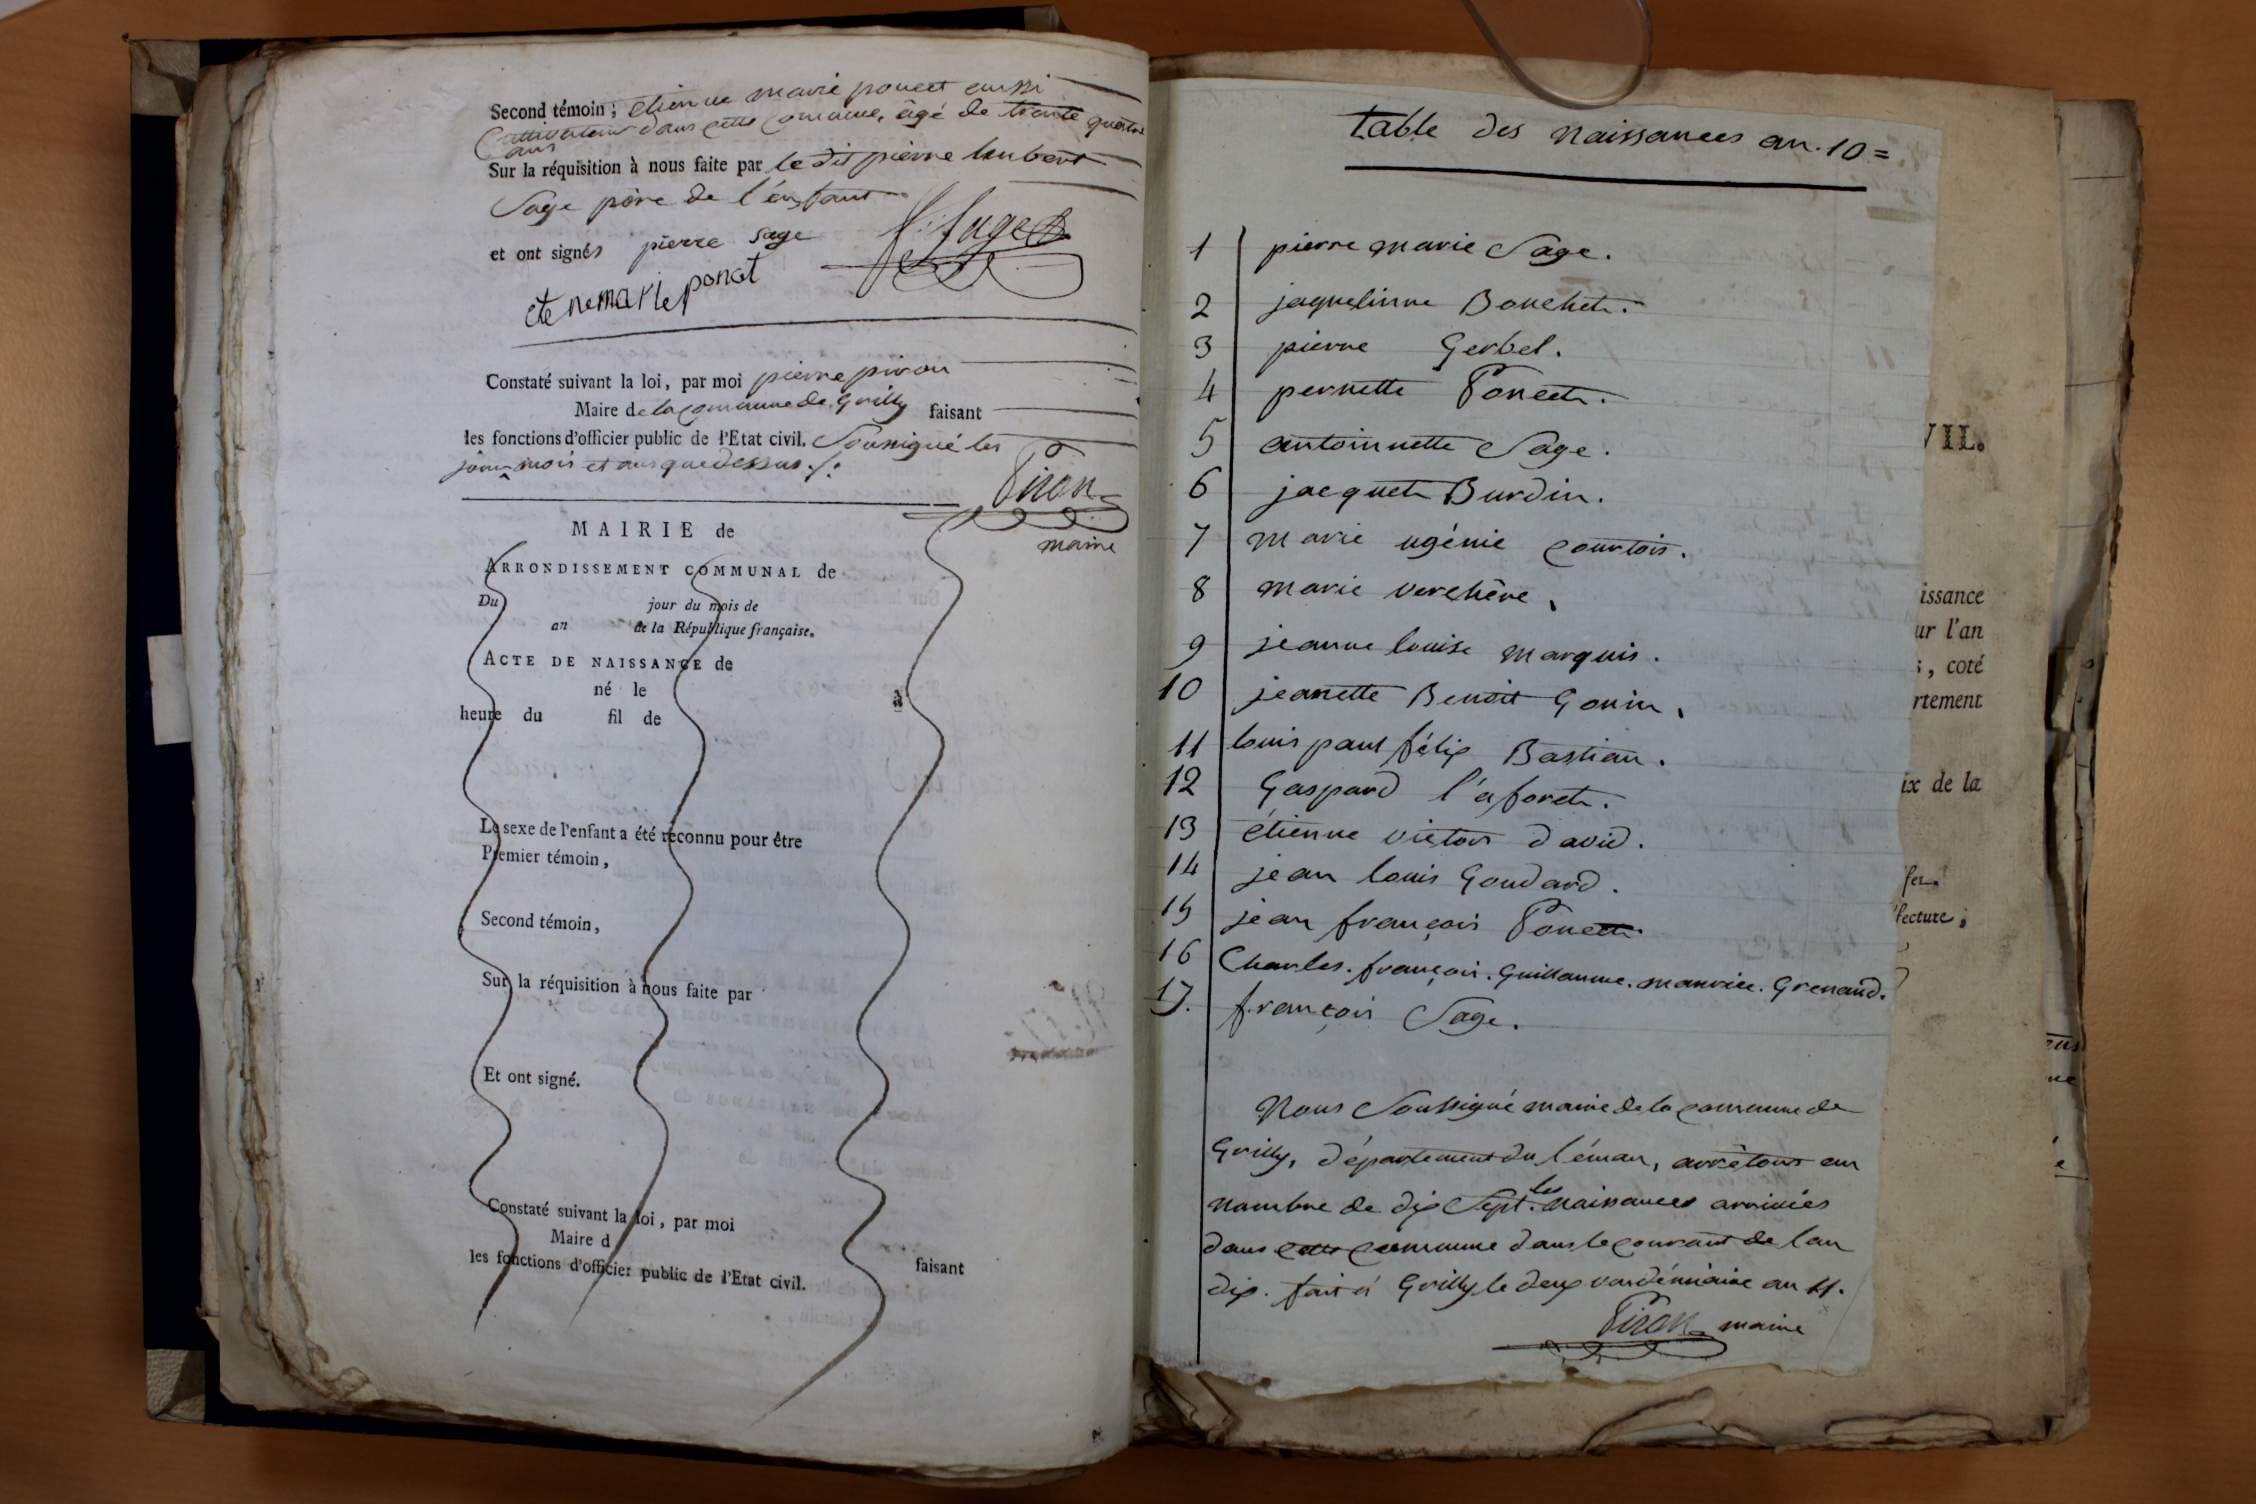 Second témoin ; etienne marie poncet aussi
Cultivateur dans cette commune, âgé de trente quatre
ans
Sur la réquisition à nous faite par le dit pierre
Sage père de l'enfant
et ont signés pierre sage
f: Sage
etienemarie ponct
Constaté suivant la loi, par moi pierre piron
Maire de la commune de Grilly faisant
les fonctions d'officier public de l'Etat civil. Soussigné les
jour mois et ans que dessus ./.
Piron
maire
MAIRIE de
ARRONDISSEMENT COMMUNAL de
Du jour du mois de
an de la République française.
ACTE DE NAISSANCE de
né le à
heure du fil de
Le sexe de l'enfant a été reconnu pour être
Premier témoin,
Second témoin,
Sur la réquisition à nous faite par
Et ont signé.
Constaté suivant la loi, par moi
Maire d faisant
les fonctions d'officier public de l'Etat civil.
table des naissances an. 10 =
1 pierre marie Sage.
2 jaquelinne Bouchet.
3 pierre Gerbel.
4 pernette Poncet.
5 antoinnette Sage.
6 jacquet Burdin.
7 marie ugénie courtois.
8 marie verchère,
9 jeanne louise marquis.
10 jeanette Benoit Gonin,
11 louis paul félix Bastian.
12 Gaspard l'aforet.
13 étienne victor david.
14 jean louis Goudard.
15 jean françois Poncet.
16 Charles. françois. Guillaume. maurice. Grenaud.
17. françois Sage.
Nous Soussigné maire de la commune de
Grilly, département du léman, arrêtons au
nombre de dix Sept. les naissances arrivées
dans cette commune dans le courant de lan
dix. fait à Grilly le deux vendémiaire an 11.
Piron maire
VII.
issance
ur l'an
, coté
rtement
ix de la
fer.
fecture ;